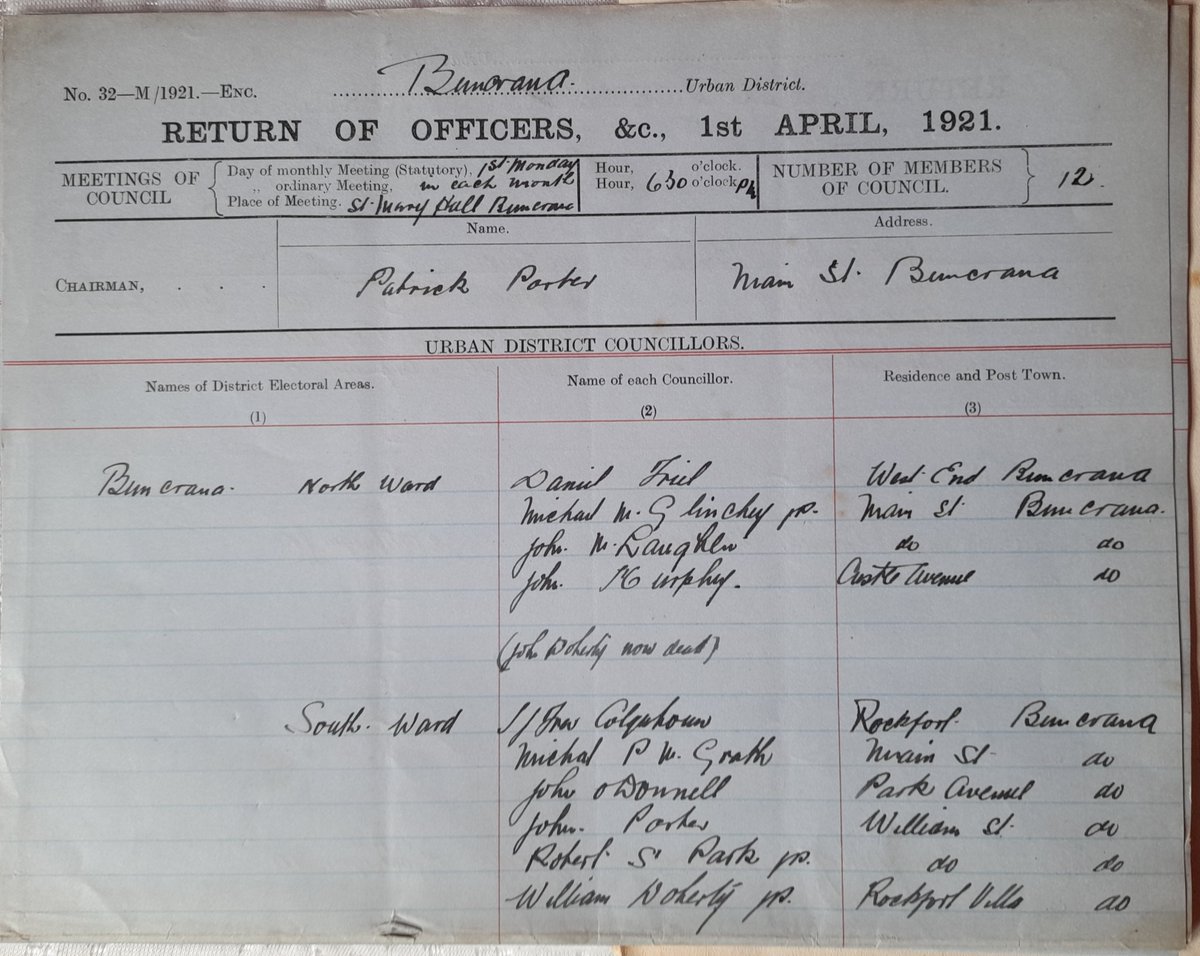 Buncrana. Urban District.
No. 32—M/1921.—Enc.
RETURN OF OFFICERS, &c., 1st APRIL, 1921.
MEETINGS OF COUNCIL
Day of monthly Meeting (Statutory), 1st Monday
„ ordinary Meeting, in each month
Place of Meeting. St. Mary Hall Buncrana
Hour, o'clock.
Hour, 6 30 o'clock PM
NUMBER OF MEMBERS OF COUNCIL. 12.
Name. Address.
Chairman, . . . Patrick Porter Main St. Buncrana
URBAN DISTRICT COUNCILLORS.
Names of District Electoral Areas. Name of each Councillor. Residence and Post Town.
(1) (2) (3)
Buncrana. North Ward Daniel Friel West End Buncrana
Michael McGlinchey jp. Main St. Buncrana.
John McLaughlin do do
John Murphy. Castle Avenue do
(John Doherty now dead)
South Ward Colquhoun Rockfort Buncrana
Michal P McGrath Main St do
John O'Donnell Park Avenue do
John Porter William St. do
Robert S Park jp. do do
William Doherty jp. Rockfort Villa do